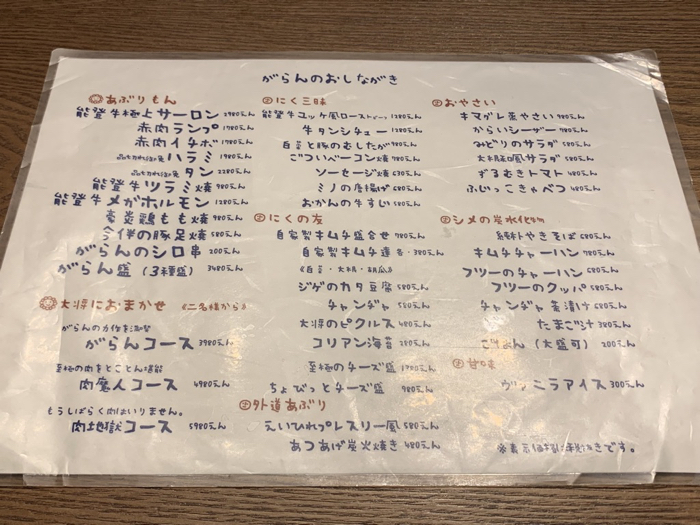 がらんのおしながき
あぶりもん
能登牛極上サーロン 2980えん
赤肉ランプ 1780えん
赤肉イチボ 1780えん
ハラミ 1980えん
タン 2280えん
能登牛ツラミ焼 980えん
能登牛メガホルモン 1280えん
鶏もも焼 980えん
今伴の豚足焼 580えん
がらんのシロ串 200えん
がらん盛(3種盛) 3480えん
大将におまかせ 《二名様から》
がらんの力作を満喫
がらんコース 3980えん
至極の肉をとことん堪能
肉魔人コース 4980えん
もうしばらく肉はいりません。
肉地獄コース 5980えん
にく三昧
能登牛ユッケ風ロースト 1280えん
牛タンシチュー 1280えん
白菜と豚のむしたが 980えん
ごついベーコン焼 980えん
ソーセージ焼 630えん
ミノの唐揚げ 680えん
おかんの牛すじ 680えん
にくの友
自家製キムチ盛合せ 980えん
自家製キムチ達 各・380えん
《白菜・大根・胡瓜》
ジゲのカタ豆腐 580えん
チャンヂャ 580えん
大将のピクルス 480えん
コリアン海苔 280えん
至極のチーズ盛 1980えん
ちょびっとチーズ盛 980えん
外道あぶり
えいひれプレスリー風 580えん
あつあげ炭火焼き 480えん
おやさい
キマグレ菜やさい 980えん
からいシーザー 980えん
みどりのサラダ 580えん
大根豚風サラダ 580えん
ずるむきトマト 480えん
ふじっこきゃべつ 480えん
シメの炭水化物
純朴やきそば 680えん
キムチチャーハン 780えん
フツーのチャーハン 580えん
フツーのクッパ 580えん
チャンヂャ茶漬け 580えん
たまご汁 380えん
ごはん(大盛可) 200えん
甘味
ヴァニラアイス 300えん
※表示価格は税抜きです。